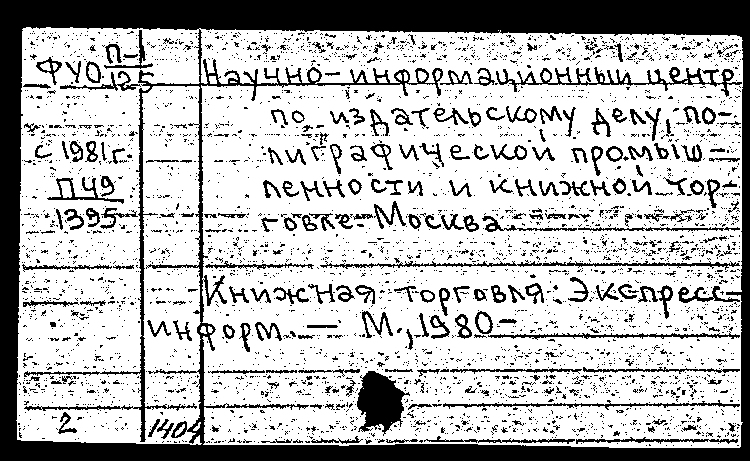 ФУО П-1
125
Научно-информационный центр
по издательскому делу, по-
с 1981г.
лиграфической промыш-
П49
ленности и книжной тор-
1395
говле. Москва.
Книжная торговля: Экспресс-
информ. — М., 1980-
2
1404